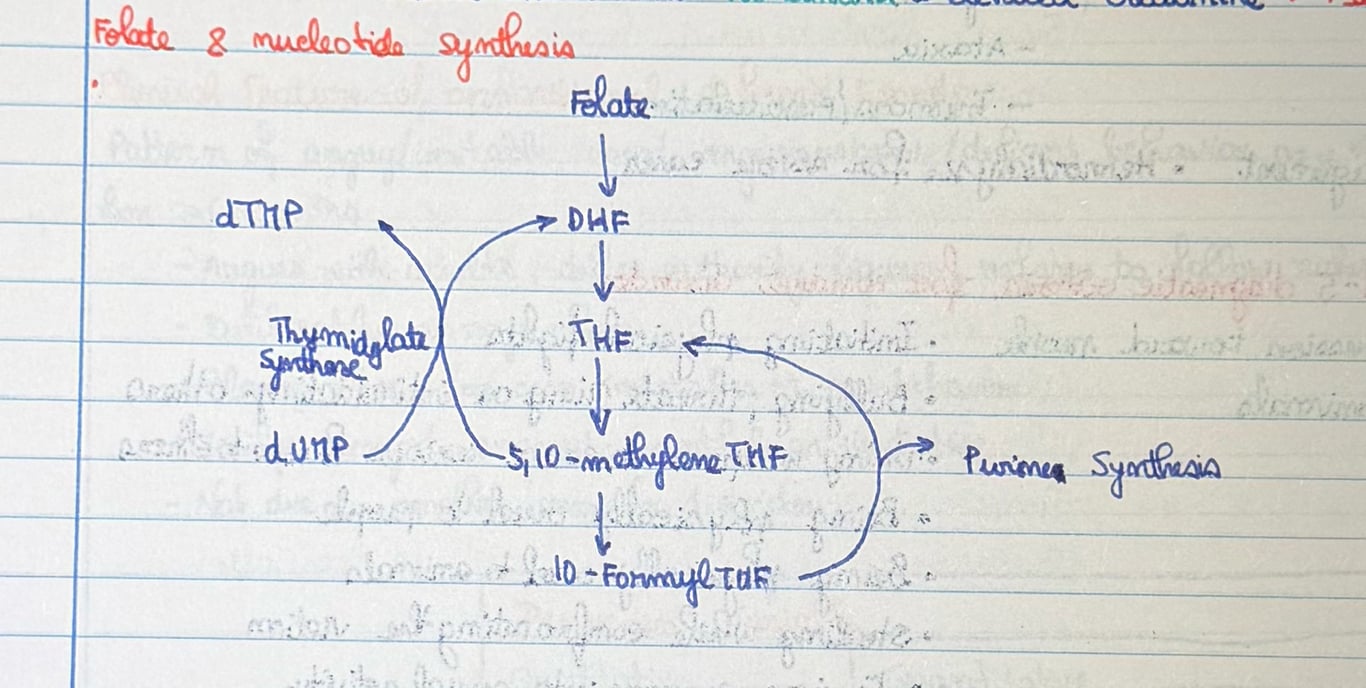 Folate & nucleotide synthesis
Folate
dTMP
DHF
Thymidylate
Synthase
THF
dUMP
5,10-methylene THF
Purines Synthesis
10-Formyl THF